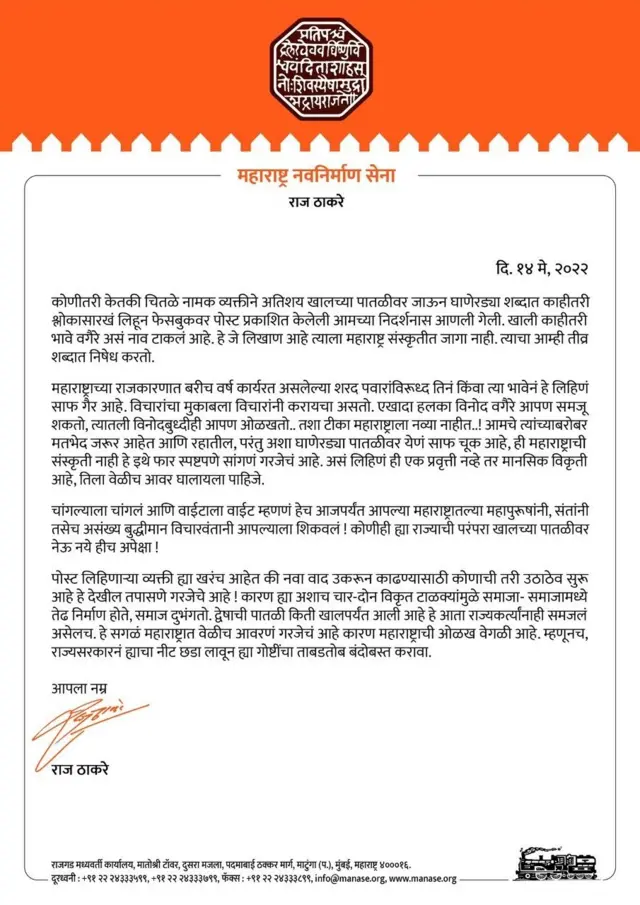 प्रतिपच्चं
द्रलेखेववर्धिष्णुर्वि
श्ववंदिताशाहसू
नोःशिवस्यैषामुद्रा
भद्रायराजते
महाराष्ट्र नवनिर्माण सेना
राज ठाकरे
दि. १४ मे, २०२२
कोणीतरी केतकी चितळे नामक व्यक्तीने अतिशय खालच्या पातळीवर जाऊन घाणेरड्या शब्दात काहीतरी
श्लोकासारखं लिहून फेसबुकवर पोस्ट प्रकाशित केलेली आमच्या निदर्शनास आणली गेली. खाली काहीतरी
भावे वगैरे असं नाव टाकलं आहे. हे जे लिखाण आहे त्याला महाराष्ट्र संस्कृतीत जागा नाही. त्याचा आम्ही तीव्र
शब्दात निषेध करतो.
महाराष्ट्राच्या राजकारणात बरीच वर्ष कार्यरत असलेल्या शरद पवारांविरूध्द तिनं किंवा त्या भावेनं हे लिहिणं
साफ गैर आहे. विचारांचा मुकाबला विचारांनी करायचा असतो. एखादा हलका विनोद वगैरे आपण समजू
शकतो, त्यातली विनोदबुध्दीही आपण ओळखतो.. तशा टीका महाराष्ट्राला नव्या नाहीत..! आमचे त्यांच्याबरोबर
मतभेद जरूर आहेत आणि रहातील, परंतु अशा घाणेरड्या पातळीवर येणं साफ चूक आहे, ही महाराष्ट्राची
संस्कृती नाही हे इथे फार स्पष्टपणे सांगणं गरजेचं आहे. असं लिहिणं ही एक प्रवृत्ती नव्हे तर मानसिक विकृती
आहे, तिला वेळीच आवर घालायला पाहिजे.
चांगल्याला चांगलं आणि वाईटाला वाईट म्हणणं हेच आजपर्यंत आपल्या महाराष्ट्रातल्या महापुरूषांनी, संतांनी
तसेच असंख्य बुद्धीमान विचारवंतानी आपल्याला शिकवलं ! कोणीही ह्या राज्याची परंपरा खालच्या पातळीवर
नेऊ नये हीच अपेक्षा !
पोस्ट लिहिणाऱ्या व्यक्ती ह्या खरंच आहेत की नवा वाद उकरून काढण्यासाठी कोणाची तरी उठाठेव सुरू
आहे हे देखील तपासणे गरजेचे आहे ! कारण ह्या अशाच चार-दोन विकृत टाळक्यांमुळे समाजा- समाजामध्ये
तेढ निर्माण होते, समाज दुभंगतो. द्वेषाची पातळी किती खालपर्यंत आली आहे हे आता राज्यकर्त्यांनाही समजलं
असेलच. हे सगळं महाराष्ट्रात वेळीच आवरणं गरजेचं आहे कारण महाराष्ट्राची ओळख वेगळी आहे. म्हणूनच,
राज्यसरकारनं ह्याचा नीट छडा लावून ह्या गोष्टींचा ताबडतोब बंदोबस्त करावा.
आपला नम्र
राज ठाकरे
राजगड मध्यवर्ती कार्यालय, मातोश्री टॉवर, दुसरा मजला, पदमाबाई ठक्कर मार्ग, माटुंगा (प.), मुंबई, महाराष्ट्र ४०००१६.
दूरध्वनी : +९१ २२ २४३३३५९९, +९१ २२ २४३३३७९९, फॅक्स : +९१ २२ २४३३३८९९, info@manase.org, www.manase.org